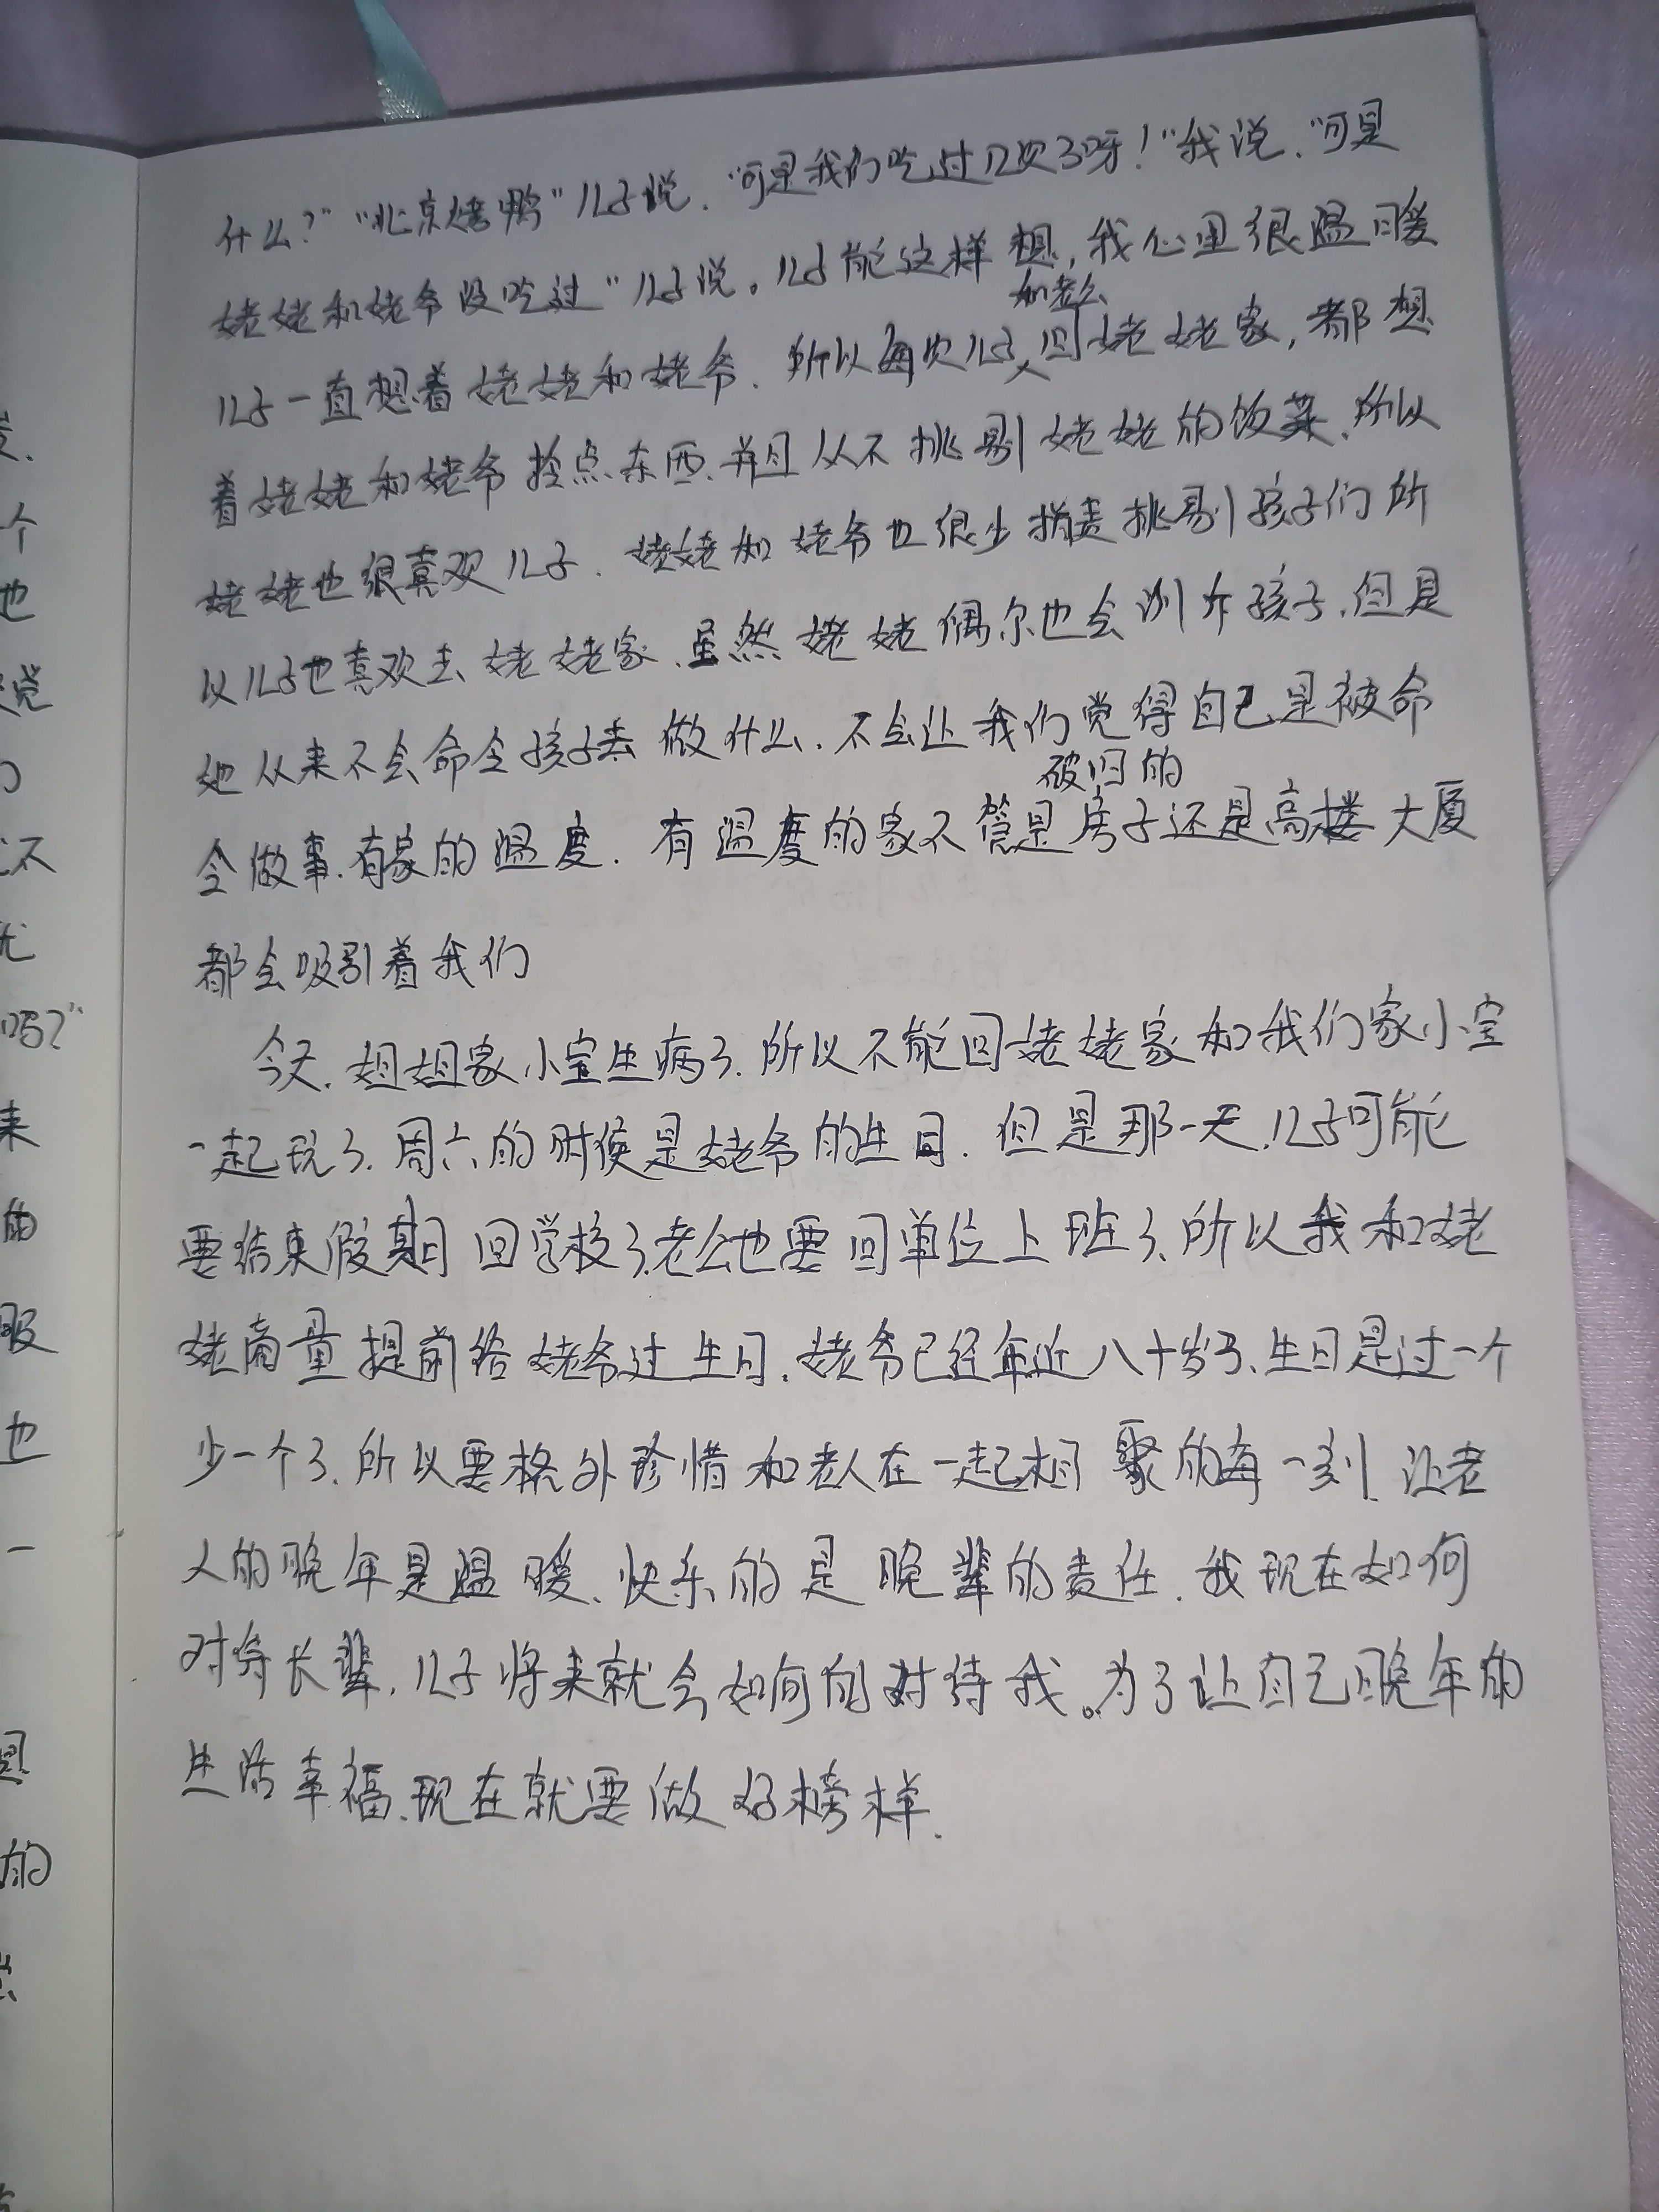 什么？”“北京烤鸭”儿子说．“可是我们吃过几次了呀！”我说．“可是
姥姥和姥爷没吃过”儿子说。儿子能这样想，我心里很温暖
儿子一直想着姥姥和姥爷．所以每次儿子和老公回姥姥家，都想
着姥姥和姥爷拎点东西．并且从不挑剔姥姥的饭菜．所以
姥姥也很喜欢儿子．姥姥和姥爷也很少指责挑剔孩子们所
以儿子也喜欢去姥姥家．虽然姥姥偶尔也会训斥孩子．但是
她从来不会命令孩子去做什么．不会让我们觉得自己是被命
令做事．有家的温度．有温度的家不管是破旧的房子还是高楼大厦
都会吸引着我们
今天．姐姐家小宝生病了．所以不能回姥姥家和我们家小宝
一起玩了．周六的时候是姥爷的生日．但是那一天．儿子可能
要结束假期回学校了．老公也要回单位上班了．所以我和姥
姥商量提前给姥爷过生日．姥爷已经年近八十岁了．生日是过一个
少一个了．所以要格外珍惜和老人在一起相聚的每一刻．让老
人的晚年是温暖．快乐的是晚辈的责任．我现在如何
对待长辈．儿子将来就会如何的对待我。为了让自己晚年的
生活幸福．现在就要做好榜样．
个
也
觉
不
吗？”
来
的
服
也
一
的